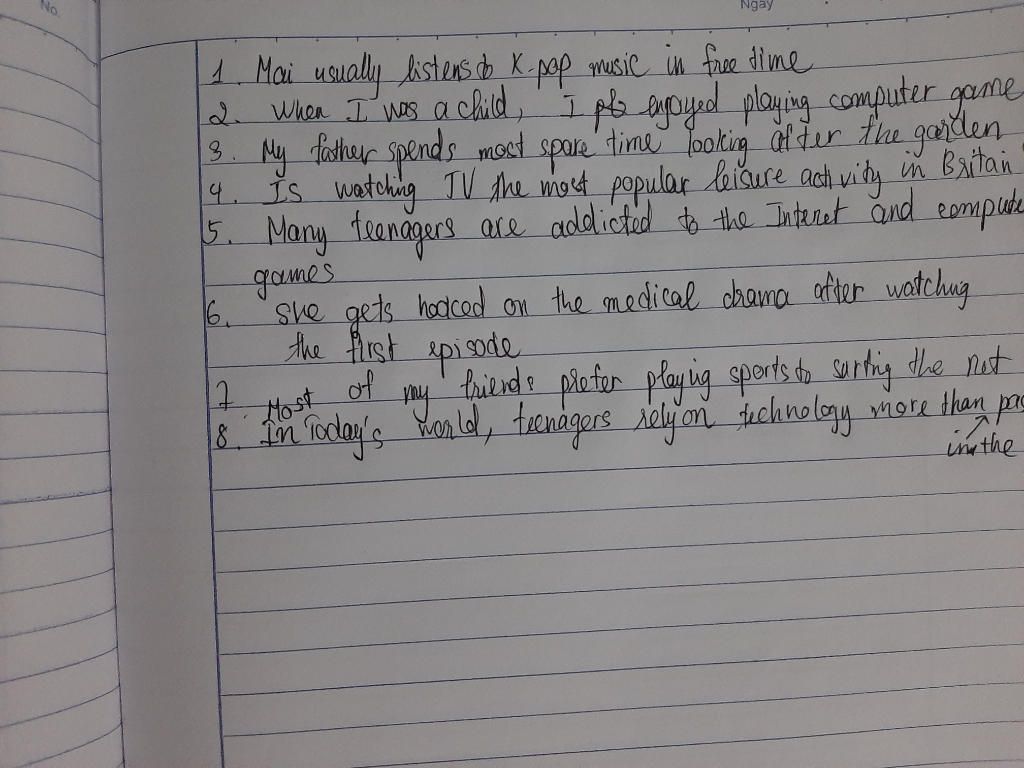 No.
Ngày
1. Mai usually listens to K-pop music in free time
2. When I was a child, I enjoyed playing computer game
3. My father spends most spare time looking after the garden
4. Is watching TV the most popular leisure activity in Britain
5. Many teenagers are addicted to the Internet and compute
games
6. She gets hooced on the medical drama after watching
the first episode
7. Most of my friends prefer playing sports to surfing the net
8. In Today's world, teenagers rely on technology more than pas
in the